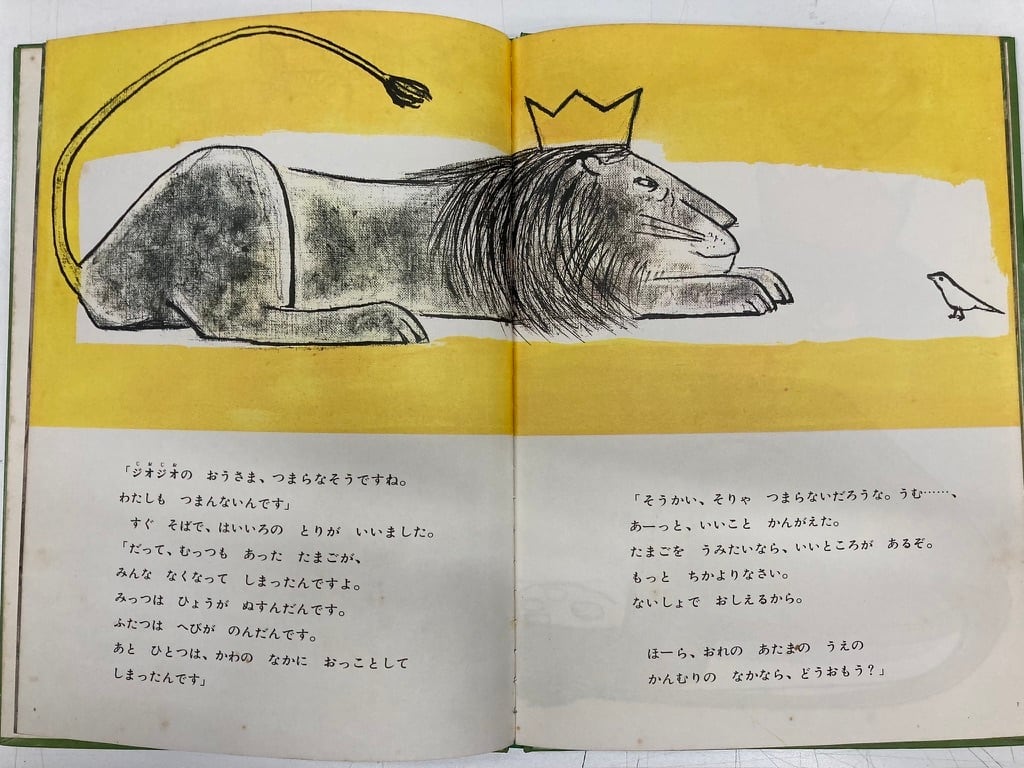 「ジオジオの　おうさま、つまらなそうですね。
わたしも　つまんないんです」
　すぐ　そばで、はいいろの　とりが　いいました。
「だって、むっつも　あった　たまごが、
みんな　なくなって　しまったんですよ。
みっつは　ひょうが　ぬすんだんです。
ふたつは　へびが　のんだんです。
あと　ひとつは、かわの　なかに　おっことして
しまったんです」
「そうかい、そりゃ　つまらないだろうな。うむ……、
あーっと、いいこと　かんがえた。
たまごを　うみたいなら、いいところが　あるぞ。
もっと　ちかよりなさい。
ないしょで　おしえるから。
ほーら、おれの　あたまの　うえの
かんむりの　なかなら、どうおもう？」